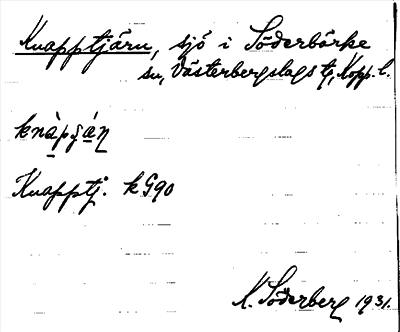 Knapptjärn, sjö i Söderbärke
sn, Västerbergslags tg, Kopp. l.
knàpʂán
Knapptj. k G90
K. Söderberg 1931.